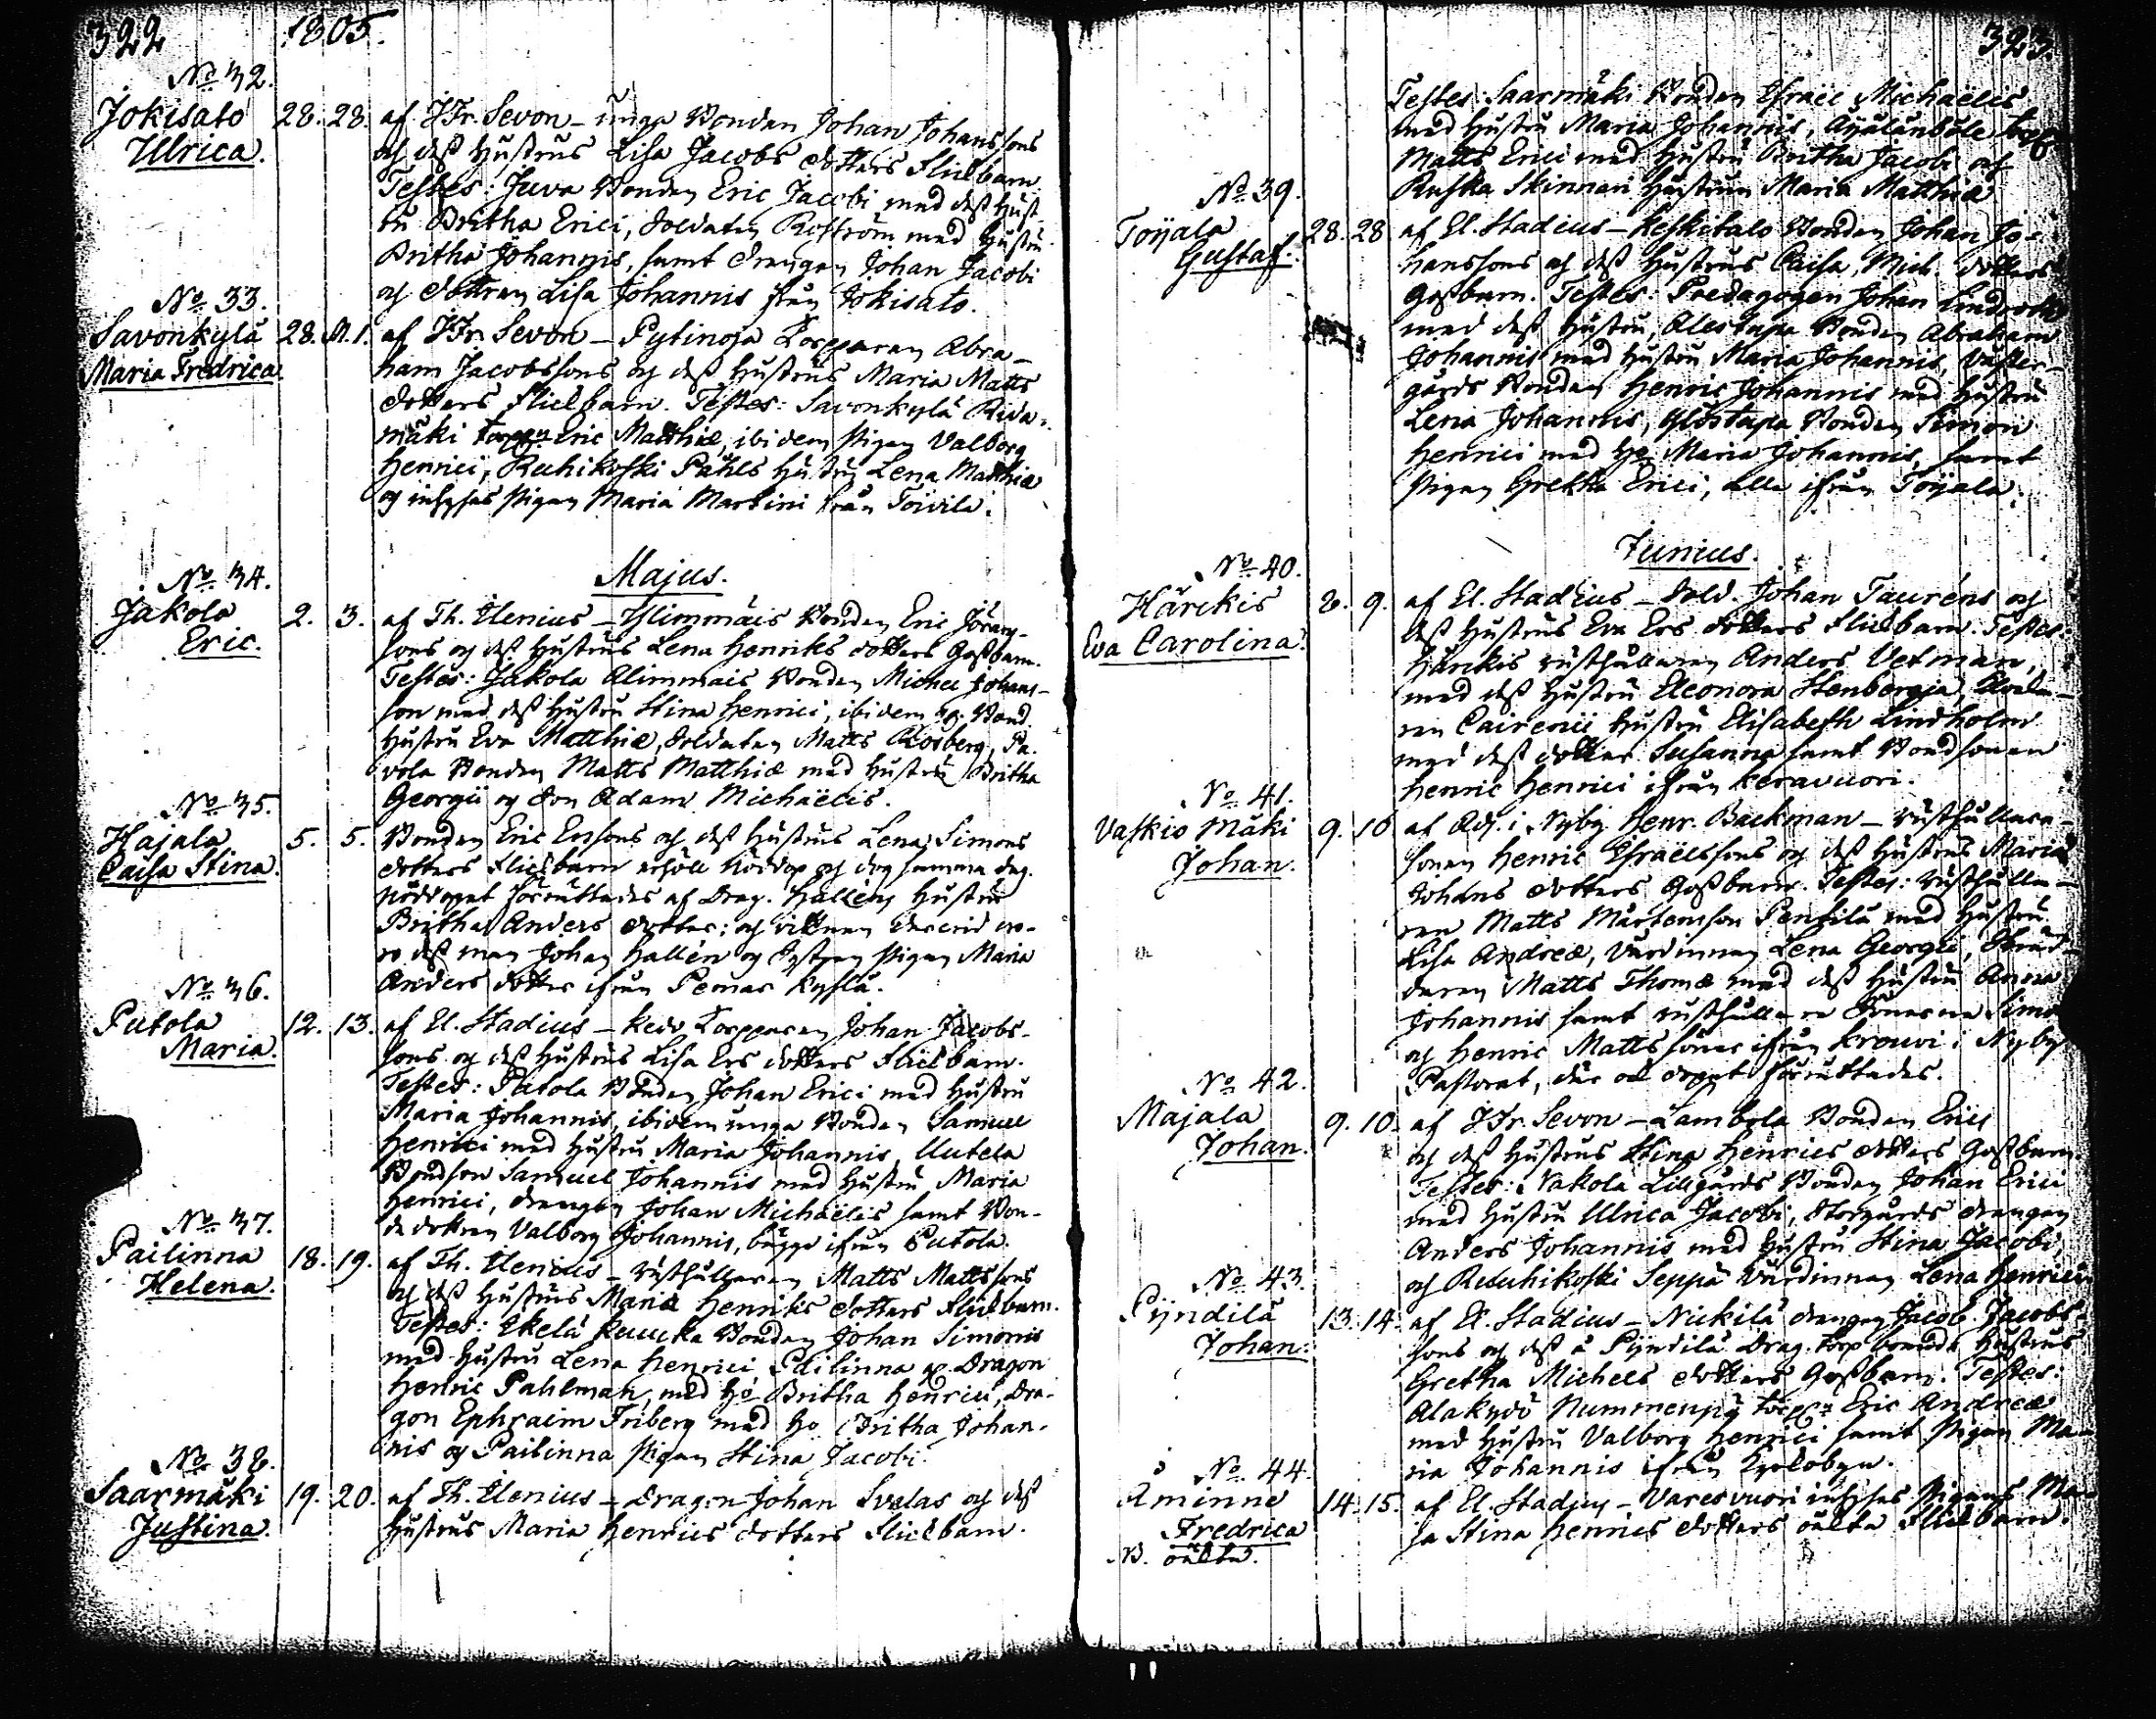 322 1805.
No 32.
Jokisato 28. 28. af HFr. Sevon - unga Bonden Johan Johanssons
Ulrica. och dess Hustrus Lisa Jacobs dotters Flickbarn.
Testes: Juva Bonden Eric Jacobi med dess Hust-
ru Britha Erici, Soldaten Roström med Hustru
Britha Johannis, samt drengen Johan Jacobi
och dottren Lisa Johannis från Jokisato.
No 33.
Savonkylä 28. M.1. af HFr. Sevon - Pytinoja Torpparen Abra-
Maria Fredrica. ham Jacobssons och dess Hustrus Maria Matts
dotters Flickbarn. Testes: Savonkylä Rida-
mäki Torpn Eric Matthiæ, ibidem Pigan Valborg
Henrici, Ruhikoski Påhls Hustru Lena Matthiæ
och inhyses Pigan Maria Martini från Toivila.
Majus.
No 34.
Jakola 2. 3. af Th. Elenius - Ylimmäis Bonden Eric Jöran-
Eric. sons och dess Hustrus Lena Henriks dotters Gossbarn.
Testes: Jakola Alimmais Bonden Michel Johans-
son med dess Hustru Stina Henrici, ibidem Bond
Hustru Eva Matthiæ, Soldaten Matts Rosberg, Pa-
vola Bonden Matts Matthiæ med Hustru Britha
Georgii och Son Adam Michaëlis.
No 35.
Hajala 5. 5. Bonden Eric Ersons och dess Hustrus Lena Simons
Caisa Stina. dotters Flickbarn erhöll Nöddop och dog samma dag.
Nöddopet förrättades af Drag. Halléns Hustru
Britha Anders dotter; och vittnen dervid vo-
ro dess man Johan Hallén och Pigan Maria
Anders dotter ifrån Pemar Kyslä.
No 36.
Putola 12. 13. af El. Stadius - Kedo Torpparen Johan Jacobs-
Maria. sons och dess Hustrus Lisa Ers dotters Flickbarn.
Testes: Putola Bonden Johan Erici med Hustru
Maria Johannis, ibidem unga Bonden Samuel
Henrici med Hustru Maria Johannis, Uutela
Bondson Samuel Johannis med Hustru Maria
Henrici, drengen Johan Michaëlis samt Bon-
de dottren Valborg Johannis, bägge ifrån Putola.
No 37.
Pailinna 18. 19. af Th. Elenius - Rusthållaren Matts Mattssons
Helena. och dess Hustrus Maria Henriks dotters Flickbarn.
Testes: Ekelä Bonden Johan Simonis
med Hustru Lena Henrici Pailinna Dragon
Henric Pahlman, med Ho Britha Henrici, Dra-
gon Ephraim Friberg med Ho Britha Johan-
nis och Pailinna Pigan Stina Jacobi.
No 38.
Saarmäki 19. 20. af Th. Elenius - Dragon Johan Svalas och dess
Justina. Hustrus Maria Henrics dotters Flickbarn.
323.
Testes: Saarmäki Bonden Israël Michaëlis
med Hustru Maria Johannis, Äijälänböle
Matts Erici med Hustru Britha Jacobi och
Ruska Skinnari Hustrun Maria Matthiæ
No 39.
Toijala 28. 28 af El. Stadius - Keskitalo Bonden Johan Jo-
Gustaf. hanssons och dess Hustrus Caisa Mich. dotters
Gossbarn. Testes: Predagogen Johan Lindroth
med dess Hustru, Alestapa Bonden Abraham
Johannis med Hustru Maria Johannis, Väster-
gårds Bonden Henric Johannis med Hustru
Lena Johannis, Ylöstapa Bonden Simon
Henrici med Ho Maria Johannis, samt
Pigan Gretha Erici, alla ifrån Toijala.
Junius.
No 40.
Härckis 8. 9. af El. Stadius - Sold. Johan Tauréns och
Eva Carolina. dess Hustrus Eva Ers dotters Flickbarn. Testes:
Härckis rusthållaren Anders Vetman,
med dess Hustru Eleonora Stenbergia,
Cairenii Hustru Elisabeth Lindholm
med dess dotter Susanna samt Bondsonen
Henric Henrici ifrån Keravuori.
No 41.
Vaskio Mäki 9. 10 af Adj. i Nyby Henr. Backman - rusthållare-
Johan. sonen Henric Israëlssons och dess Hustrus Maria
Johans dotters Gossbarn. Testes: rusthålla-
ren Matts Mårtensson Penkilä med Hustru
Lisa Andreæ, Värdinnan Lena Georgii,
Matts Thomæ med dess Hustru Anna
Johannis samt rusthållare Sönerne Simo
och Henric Matts söner ifrån Krouvi i Nyby
Pastorat, där ock dopet förrättades.
No 42.
Majala 9. 10. af HFr. Sevon - Lambola Bonden Erics
Johan. och dess Hustrus Stina Henrics dotters Gossbarn.
Testes: Nakola Lillgårds Bonden Johan Erici
med Hustru Ulrica Jacobi, Storgårds drengen
Anders Johannis med Hustru Stina Jacobi,
och Ruuhikoski Seppä Värdinnan Lena Henrici
No 43.
Pyndilä 13. 14. af El. Stadius - Nickilä drengen Jacob Jacobs-
Johan. sons och dess å Pyndilä Drag. torp boende Hustrus
Gretha Michels dotters Gossbarn. Testes:
Alakydö Nummenpä Torpn Eric Andreæ
med Hustru Valborg Henrici samt Pigan Ma-
ria Johannis ifrån
No 44.
Åminne 14. 15. af El. Stadius - Varesvuori inhyses Pigans Ma-
Fredrica ja Stina Henrics dotters oäkta Flickbarn.
NB. oäkta.